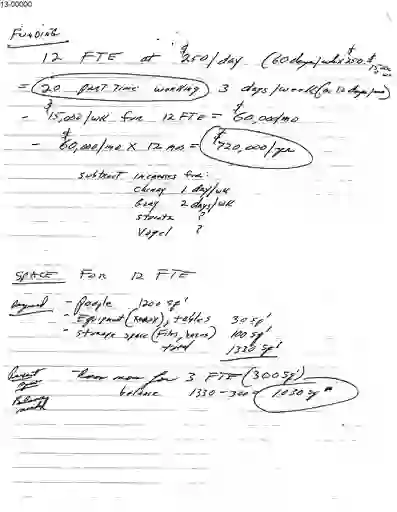 13-00000
FUNDING
12 FTE at $250/day (60 days/wk x $250 = $15,000
= (20 part time working) 3 days/week (or 12 days/mo)
- $15,000/wk for 12 FTE = $60,000/mo
- $60,000/mo x 12 mos = $720,000/yr
subtract increases for:
1 day/wk
Gray 2 days/wk
?
Vogel ?
SPACE FOR 12 FTE
Required - People 1200 sq'
- Equipment (Xerox), tables 30 sq'
- Storage space (files, ) 100 sq'
total 1330 sq'
Current space - Room now for 3 FTE (300 sq')
Balance needed balance 1330 - 300 = 1030 sq'